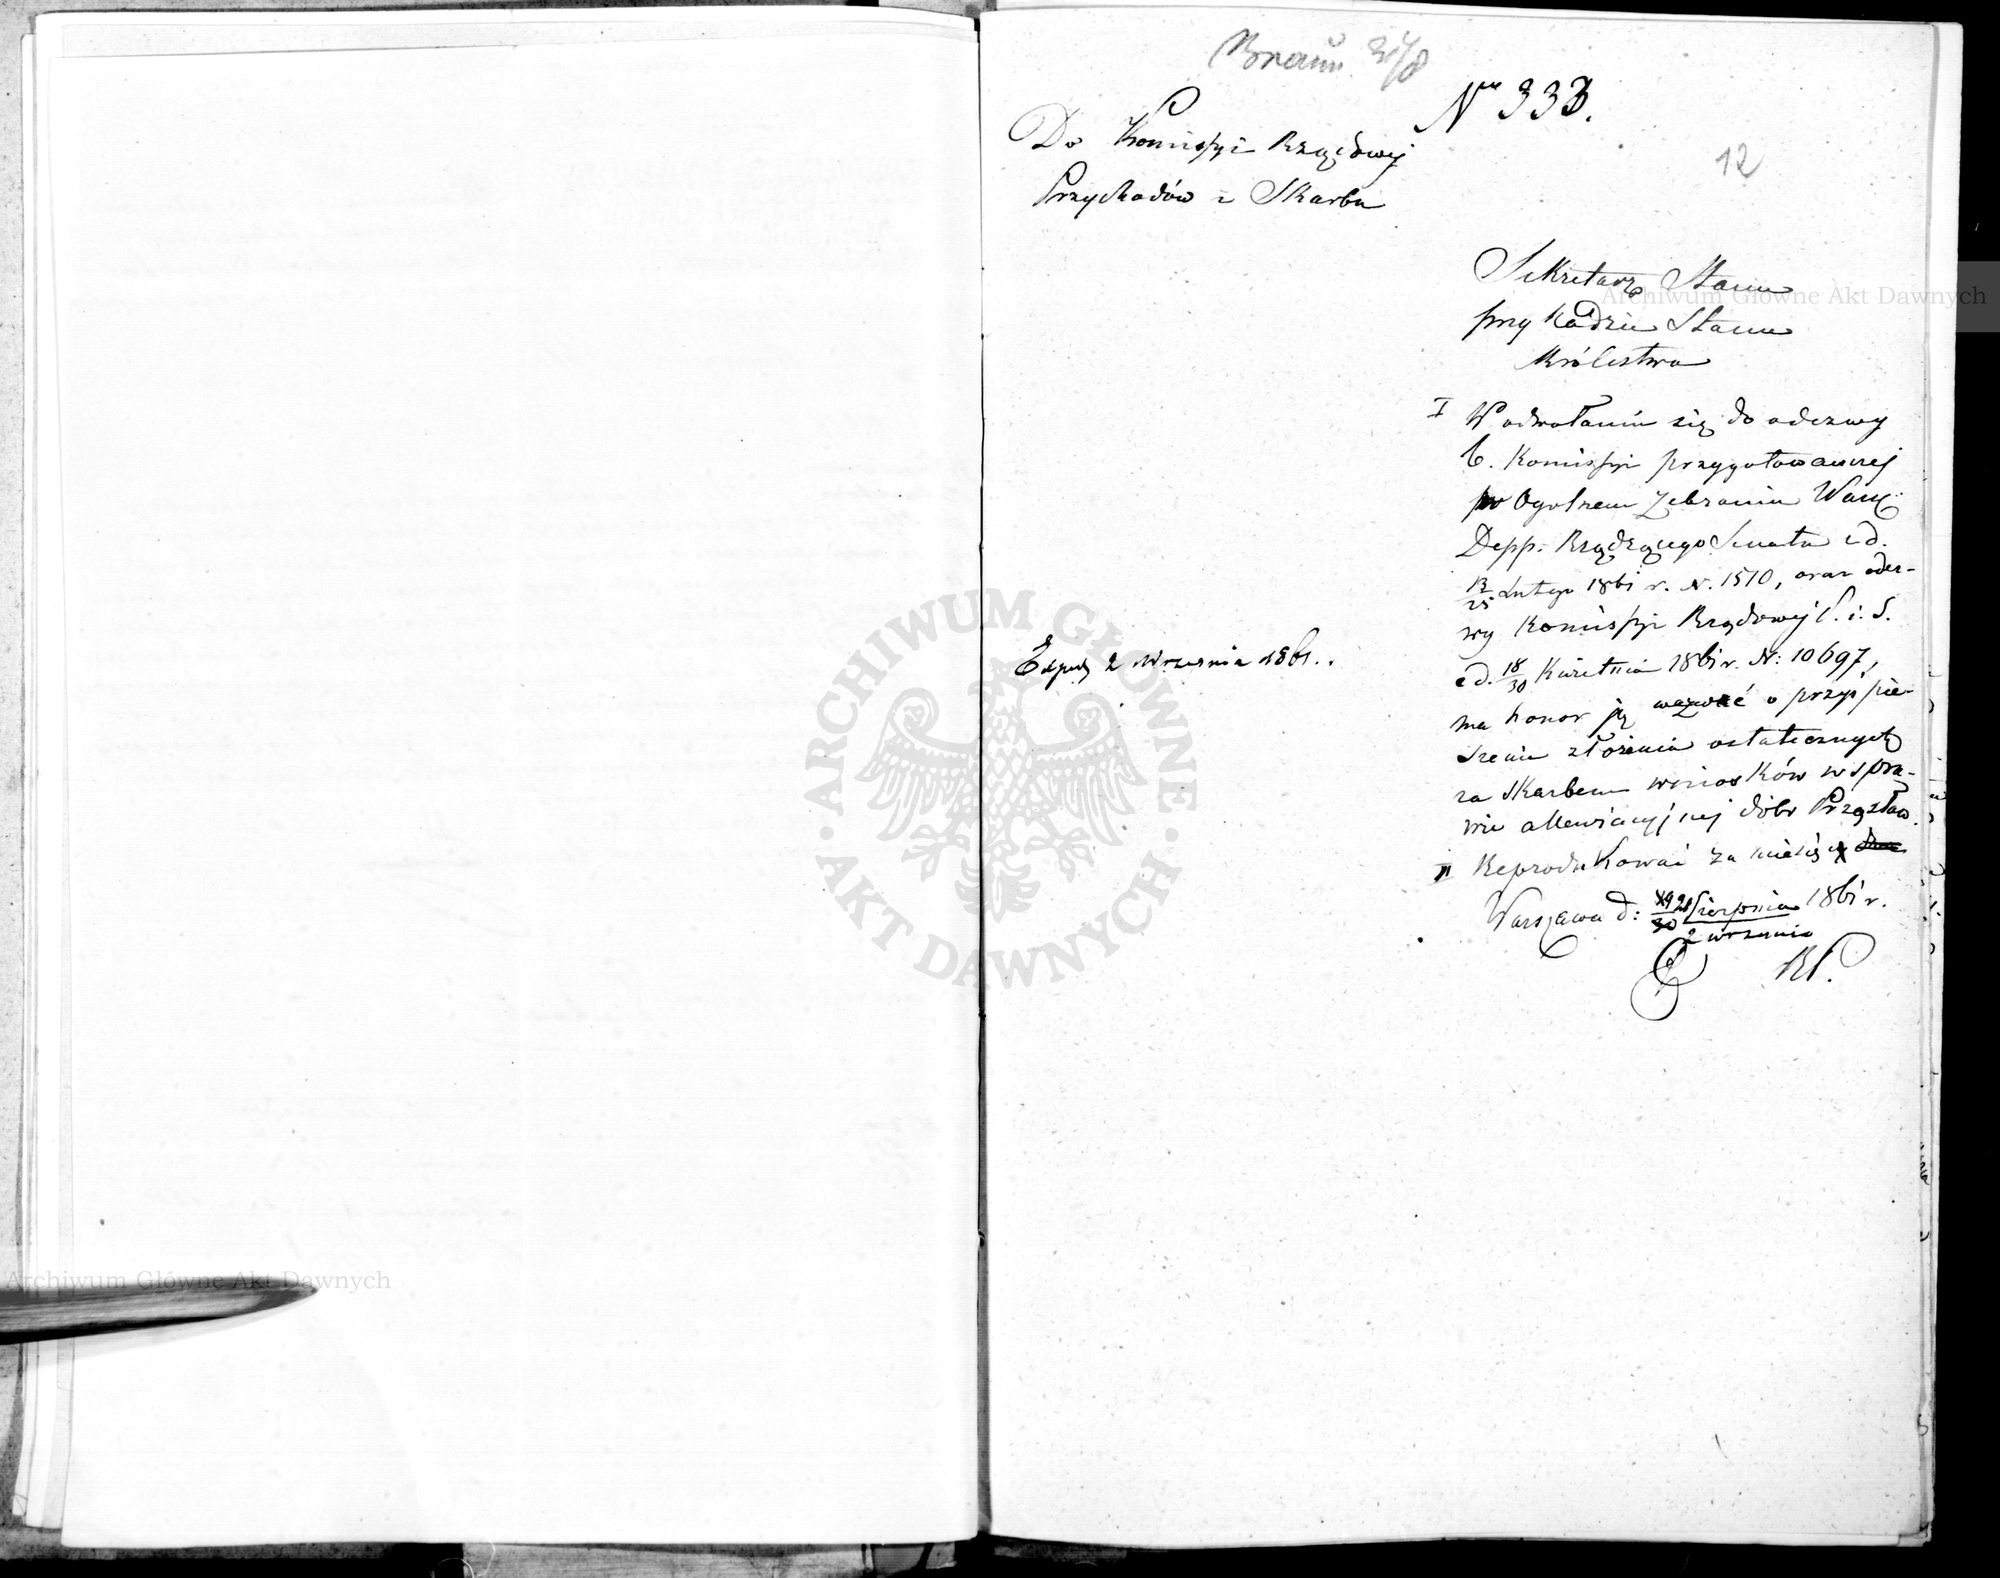 Braun 31/8
Nr 333.
12
Do Komissyi Rządowej
Przychodów i Skarbu
Sekretarz Stanu
przy Radzie Stanu
Królestwa
I W odwołaniu się do odezwy
b. Komissyi przygotowawczej
w Ogólnem Zebraniu Warsz.
Depp. Rządzącego Senatu z d.
13/25 Lutego 1861 r. N. 1570, oraz odez-
wy Komissyi Rządowej P. i S.
z d. 18/30 Kwietnia 1861 r. N: 10697,
ma honor ją wezwać o przyspie-
szenie złożenia ostatecznych
za Skarbem wniosków w spra-
wie allewiacyjnej dóbr Przesław
II Reprodukować za miesiąc
Warszawa d: 21 Sierpnia 1861 r.
2 września
Exped 2 Września 1861.
Archiwum Główne Akt Dawnych
Archiwum Główne Akt Dawnych
ARCHIWUM GŁÓWNE · AKT DAWNYCH ·